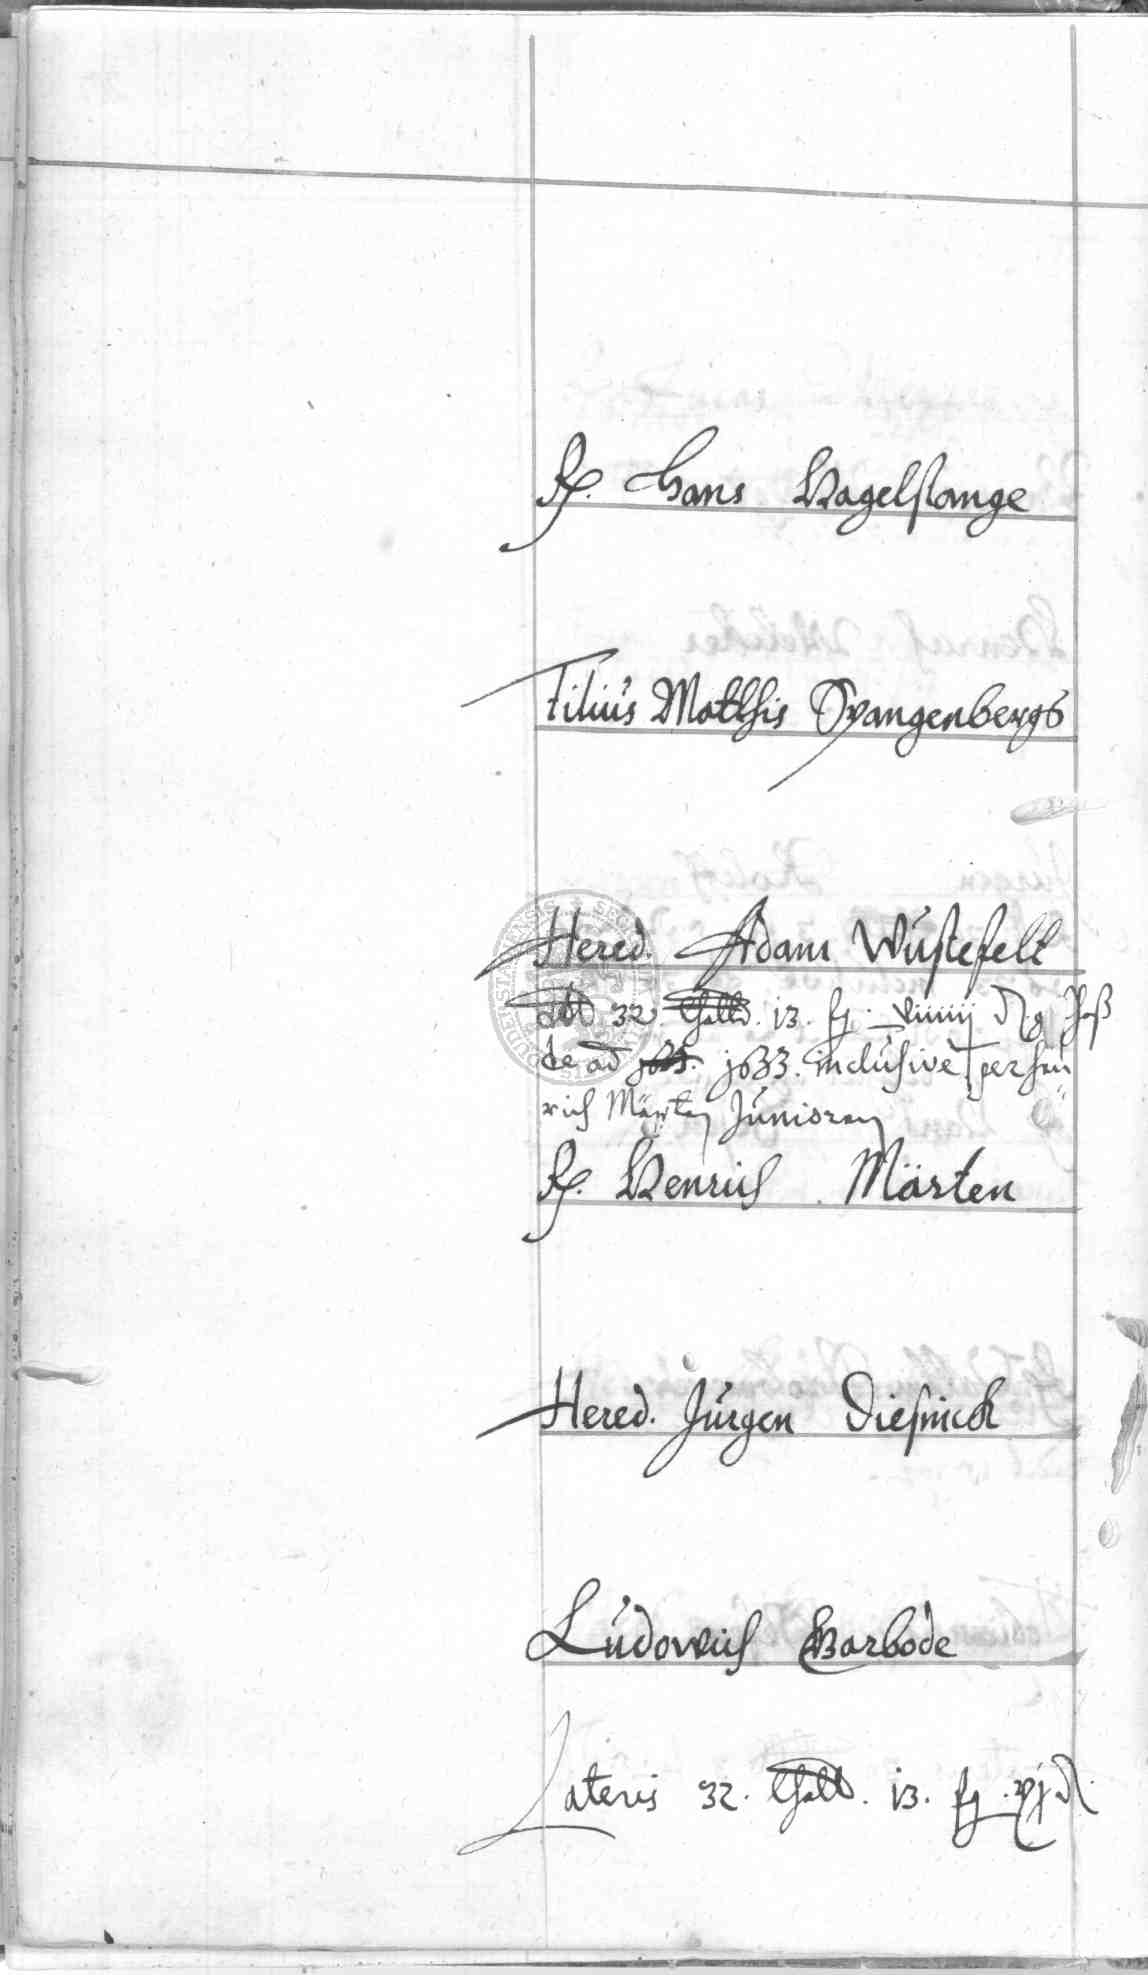 R. Hans Hagelstange
Filius Matthis Spangenbergs
Hered. Adam Wüstefelt
ddt 32. thall. 13. ßg. Schoß
de ao 1633. inclusive per Hen
rich Märten Juniorem
R. Henrich Märten
Hered. Jürgen Diesnick
Ludowich Barbode
Lateris 32. thall. 13. ßg. vj d.